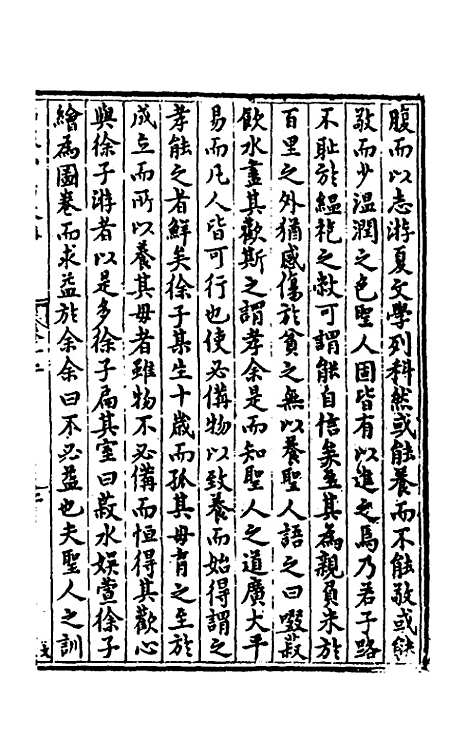 腹而以志游夏文學列科然或能養而不能敬或能
敬而少温潤之色聖人固皆有以進之焉乃若子路
不耻於緼袍之敝可謂能自信矣至其為親負米於
百里之外猶感傷於貧之無以養聖人語之曰啜菽
飲水盡其歡斯之謂孝余是而知聖人之道廣大平
易而凡人皆可行也使必備物以致養而始得謂之
孝能之者鮮矣徐子某生十歲而孤其母育之至於
成立而所以養其母者雖物不必備而恒得其歡心
與徐子游者以是多徐子扁其室曰菽水娱萱徐子
繪為圖卷而求益於余余曰不必益也夫聖人之訓